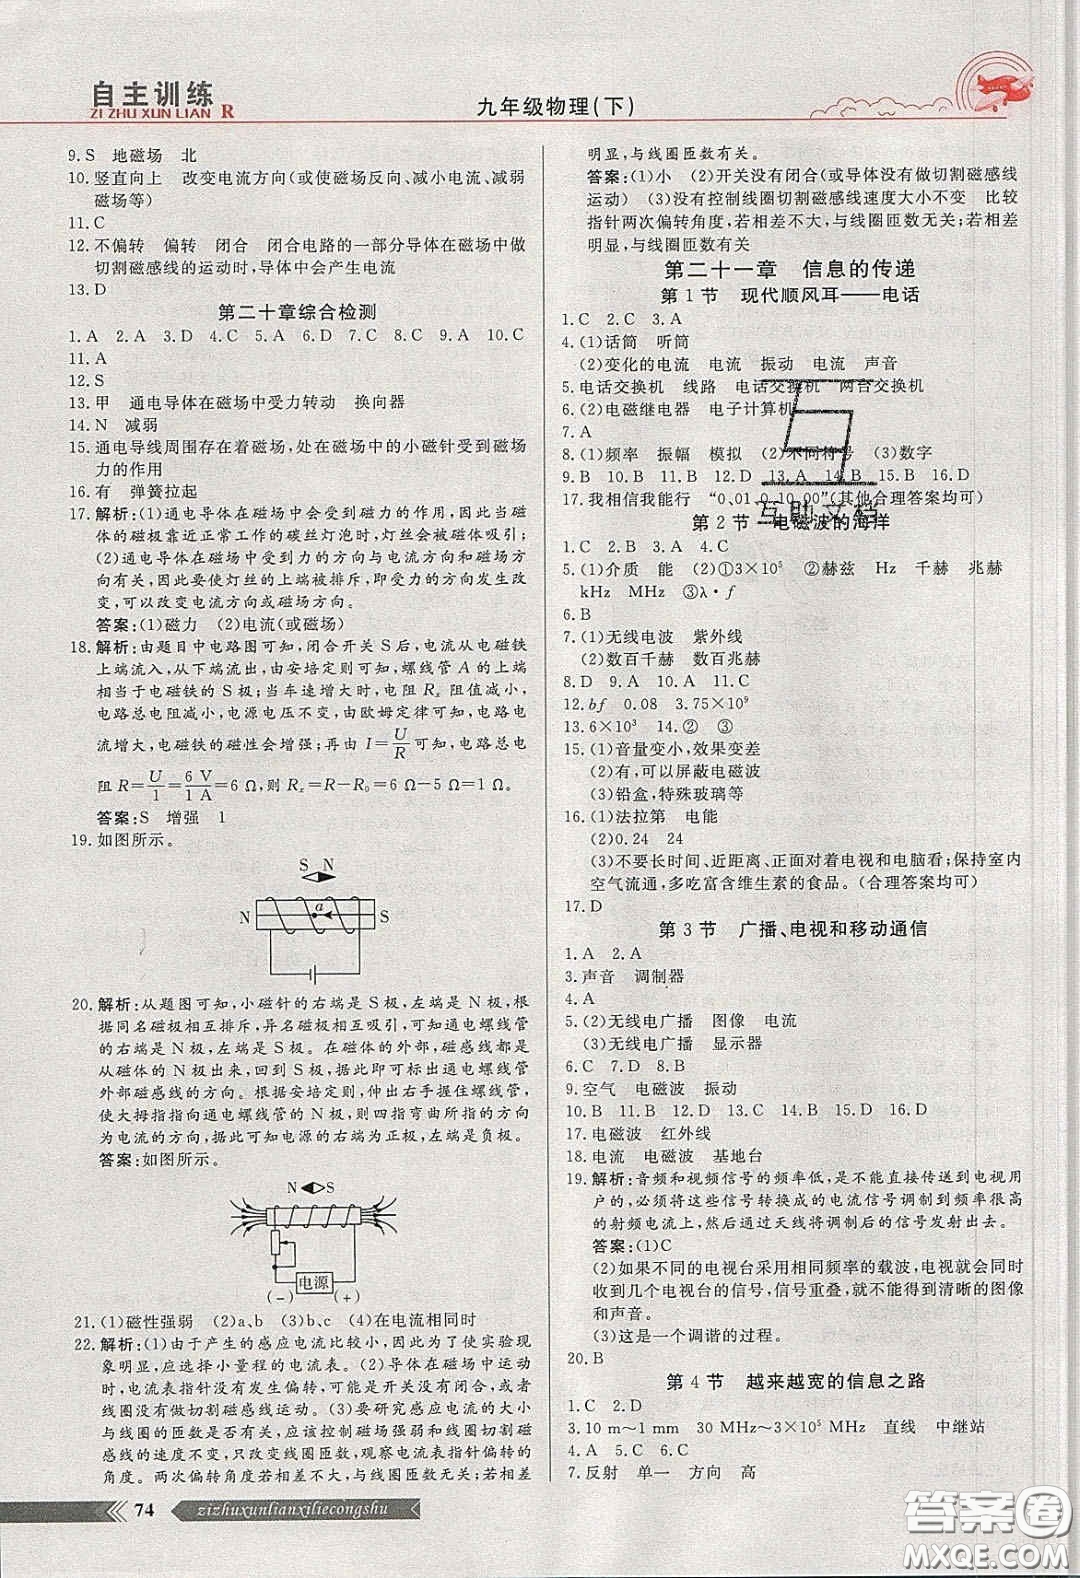 自主训练
ZI ZHU XUN LIAN R
九年级物理(下)
9. S 地磁场 北
10. 竖直向上 改变电流方向(或使磁场反向、减小电流、减弱
磁场等)
11. C
12. 不偏转 偏转 闭合 闭合电路的一部分导体在磁场中做
切割磁感线的运动时,导体中会产生电流
13. D
第二十章综合检测
1. A 2. A 3. D 4. C 5. A 6. D 7. C 8. C 9. A 10. C
11. A
12. S
13. 甲 通电导体在磁场中受力转动 换向器
14. N 减弱
15. 通电导线周围存在着磁场,处在磁场中的小磁针受到磁场
力的作用
16. 有 弹簧拉起
17. 解析:(1)通电导体在磁场中会受到磁力的作用,因此当磁
体的磁极靠近正常工作的碳丝灯泡时,灯丝会被磁体吸引;
(2)通电导体在磁场中受到力的方向与电流方向和磁场方
向有关,因此要使灯丝的上端被排斥,即受力的方向发生改
变,可以改变电流方向或磁场方向。
答案:(1)磁力 (2)电流(或磁场)
18. 解析:由题目中电路图可知,闭合开关 S 后,电流从电磁铁
上端流入,从下端流出,由安培定则可知,螺线管 A 的上端
相当于电磁铁的 S 极;当车速增大时,电阻 Rx 阻值减小,
电路总电阻减小,电源电压不变,由欧姆定律可知,电路电
流增大,电磁铁的磁性会增强;再由 I=U/R 可知,电路总电
阻 R=U/1=6 V/1 A=6 Ω,则 Rx=R−R0=6 Ω−5 Ω=1 Ω。
答案:S 增强 1
19. 如图所示。
S N
N a S
20. 解析:从题图可知,小磁针的右端是 S 极,左端是 N 极,根
据同名磁极相互排斥,异名磁极相互吸引,可知通电螺线管
的右端是 N 极,左端是 S 极。在磁体的外部,磁感线都是
从磁体的 N 极出来,回到 S 极,据此即可标出通电螺线管
外部磁感线的方向。根据安培定则,伸出右手握住螺线管,
使大拇指指向通电螺线管的 N 极,则四指弯曲所指的方向
为电流的方向,据此可知电源的右端为正极,左端是负极。
答案:如图所示。
N S
电源
(−) (+)
21. (1)磁性强弱 (2)a、b (3)b、c (4)在电流相同时
22. 解析:(1)由于产生的感应电流比较小,因此为了使实验现
象明显,应选择小量程的电流表。(2)导体在磁场中运动
时,电流表指针没有发生偏转,可能是开关没有闭合,或导体
没有做切割磁感线运动。(3)要研究感应电流的大小
与线圈的匝数是否有关,应该控制磁场强弱和线圈切割磁
感线的速度不变,只改变线圈匝数,观察电流表指针偏转的
角度。两次偏转角度若相差不大,与线圈匝数无关;若相差
74 zizhuxunlianxiliecongshu
明显,与线圈匝数有关。
答案:(1)小 (2)开关没有闭合(或导体没有做切割磁感线
运动) (3)没有控制线圈切割磁感线速度大小不变 比较
指针两次偏转角度,若相差不大,与线圈匝数无关;若相差
明显,与线圈匝数有关
第二十一章 信息的传递
第 1 节 现代顺风耳——电话
1. C 2. C 3. A
4. (1)话筒 听筒
(2)变化的电流 电流 振动 电流 声音
5. 电话交换机 线路 电话交换机 两台交换机
6. (2)电磁继电器 电子计算机
7. A
8. (1)频率 振幅 模拟 (2)不同符号 (3)数字
9. B 10. B 11. B 12. D 13. A 14. B 15. B 16. D
17. 我相信我能行 “0,01,0,10,00”(其他合理答案均可)
第 2 节 电磁波的海洋
1. C 2. B 3. A 4. C
5. (1)介质 能 (2)①3×10⁵ ②赫兹 Hz 千赫 兆赫
kHz MHz ③λ·f
6. B
7. (1)无线电波 紫外线
(2)数百千赫 数百兆赫
8. D 9. A 10. A 11. C
12. bf 0.08 3.75×10⁹
13. 6×10³ 14. ② ③
15. (1)音量变小,效果变差
(2)有,可以屏蔽电磁波
(3)铅盒,特殊玻璃等
16. (1)法拉第 电能
(2)0.24 24
(3)不要长时间、近距离、正面对着电视和电脑看;保持室内
空气流通,多吃富含维生素的食品。(合理答案均可)
17. D
第 3 节 广播、电视和移动通信
1. A 2. A
3. 声音 调制器
4. A
5. (2)无线电广播 图像 电流
(3)无线电广播 显示器
6. C 7. D 8. B
9. 空气 电磁波 振动
10. B 11. B 12. D 13. C 14. B 15. D 16. D
17. 电磁波 红外线
18. 电流 电磁波 基地台
19. 解析:音频和视频信号的频率低,是不能直接传送到电视用
户的,必须将这些信号转换成的电流信号调制到频率很高
的射频电流上,然后通过天线将调制后的信号发射出去。
答案:(1)C
(2)如果不同的电视台采用相同频率的载波,电视就会同时
收到几个电视台的信号,信号重叠,就不能得到清晰的图像
和声音。
(3)这是一个调谐的过程。
20. B
第 4 节 越来越宽的信息之路
1. C 2. D
3. 10 m～1 mm 30 MHz～3×10⁵ MHz 直线 中继站
4. A 5. C 6. C
7. 反射 单一 方向 高
互助文档
答案圈
MXQE.COM